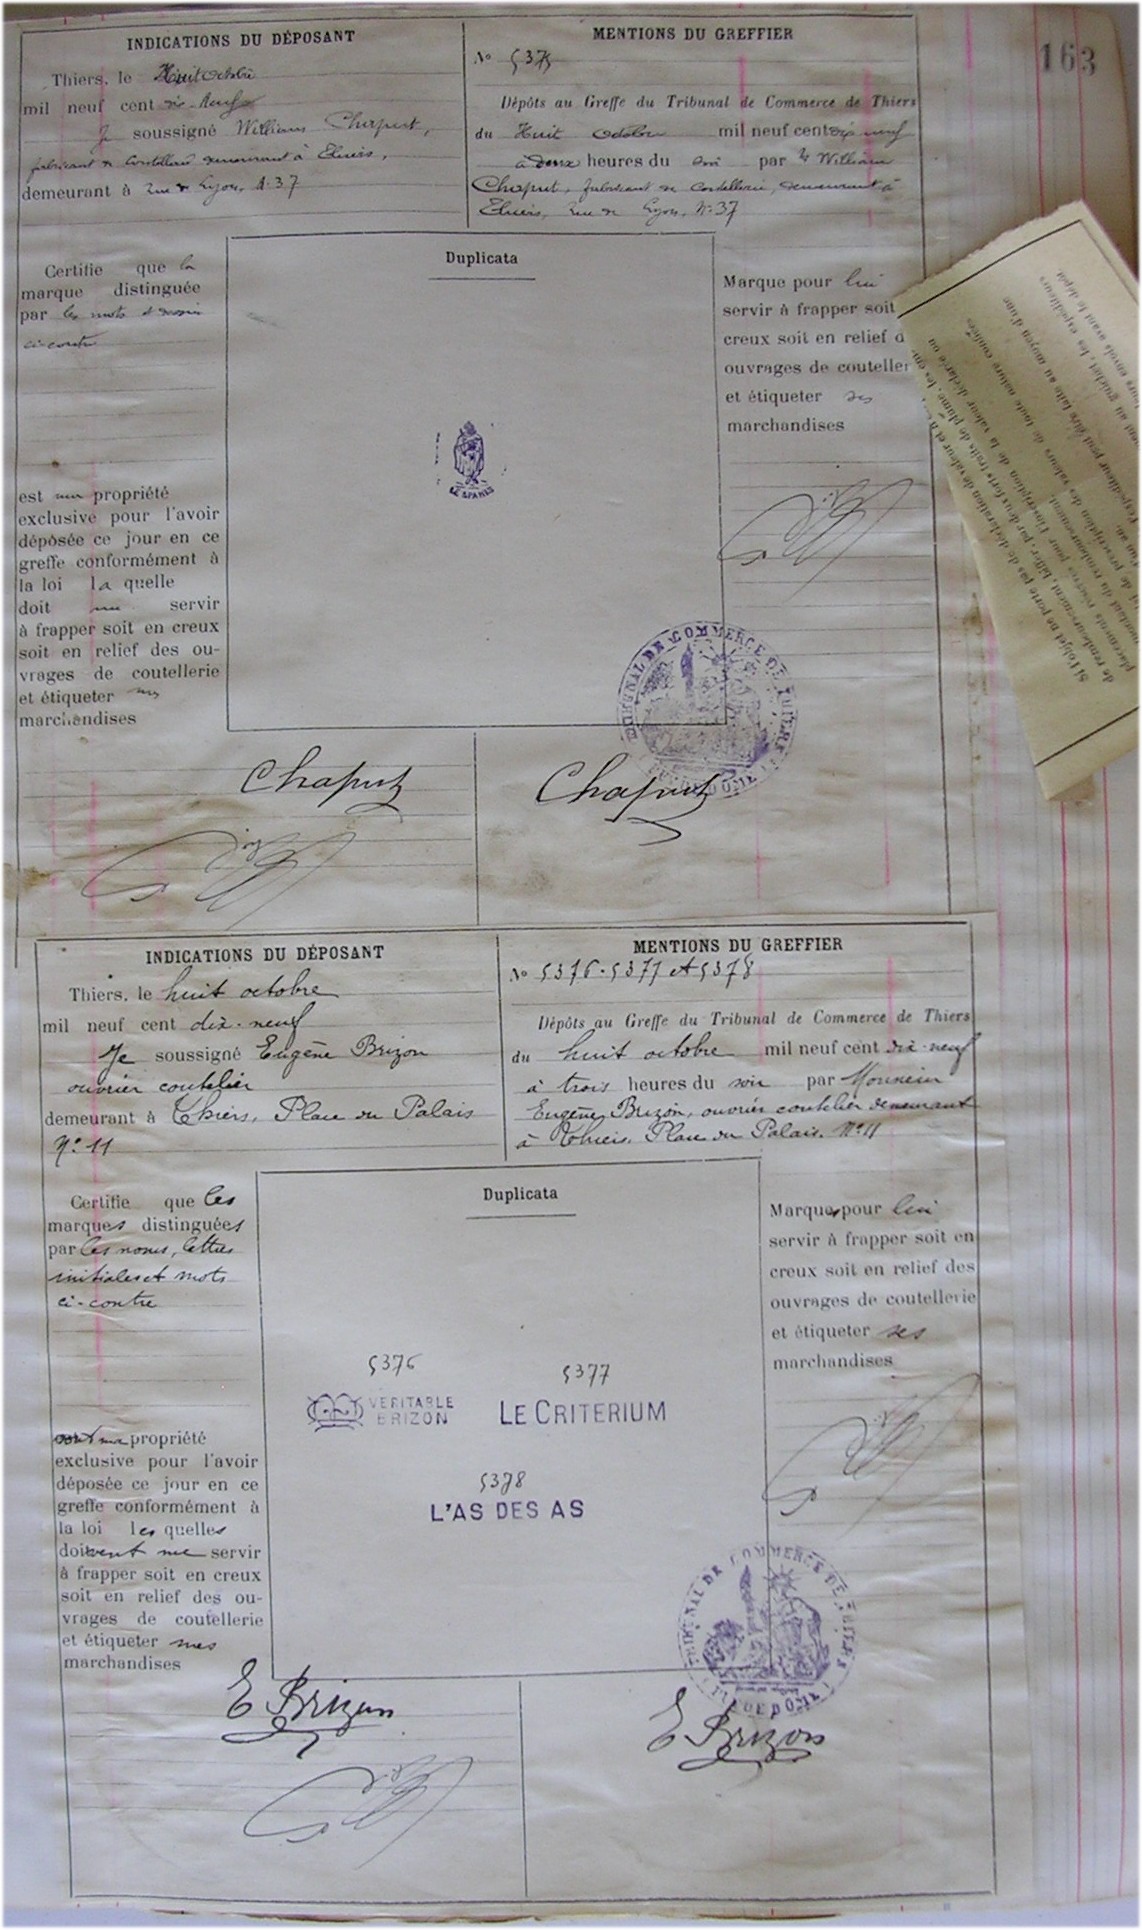 163
INDICATIONS DU DÉPOSANT
Thiers, le Huit octobre
mil neuf cent dix-neuf
Je soussigné William Chaput,
fabricant de coutellerie demeurant à Thiers,
demeurant à rue de Lyon, N. 37
MENTIONS DU GREFFIER
No 5375
Dépôts au Greffe du Tribunal de Commerce de Thiers
du Huit octobre mil neuf cent dix neuf
à deux heures du soir par Mr William
Chaput, fabricant de coutellerie, demeurant à
Thiers, rue de Lyon, No 37
Certifie que la
marque distinguée
par les mots et dessin
ci-contre
est ma propriété
exclusive pour l'avoir
déposée ce jour en ce
greffe conformément à
la loi la quelle
doit me servir
à frapper soit en creux
soit en relief des ou-
vrages de coutellerie
et étiqueter mes
marchandises
Duplicata
Marque pour lui
servir à frapper soit
creux soit en relief d
ouvrages de couteller
et étiqueter ses
marchandises
TRIBUNAL DE COMMERCE DE THIERS
PUY DE DOME
Chaput
Chaput
INDICATIONS DU DÉPOSANT
Thiers, le huit octobre
mil neuf cent dix-neuf
Je soussigné Eugène Brizon
ouvrier coutelier
demeurant à Thiers, Place du Palais
No 11
MENTIONS DU GREFFIER
No 5376-5377 et 5378
Dépôts au Greffe du Tribunal de Commerce de Thiers
du huit octobre mil neuf cent dix-neuf
à trois heures du soir par Monsieur
Eugène Brizon, ouvrier coutelier demeurant
à Thiers, Place du Palais, No 11
Certifie que les
marques distinguées
par les noms, lettres
initiales et mots
ci-contre
sont ma propriété
exclusive pour l'avoir
déposée ce jour en ce
greffe conformément à
la loi les quelles
doivent me servir
à frapper soit en creux
soit en relief des ou-
vrages de coutellerie
et étiqueter mes
marchandises
Duplicata
5376
5377
VERITABLE
BRIZON
LE CRITERIUM
5378
L'AS DES AS
Marques pour lui
servir à frapper soit en
creux soit en relief des
ouvrages de coutellerie
et étiqueter ses
marchandises
TRIBUNAL DE COMMERCE DE THIERS
PUY DE DOME
E Brizon
E Brizon